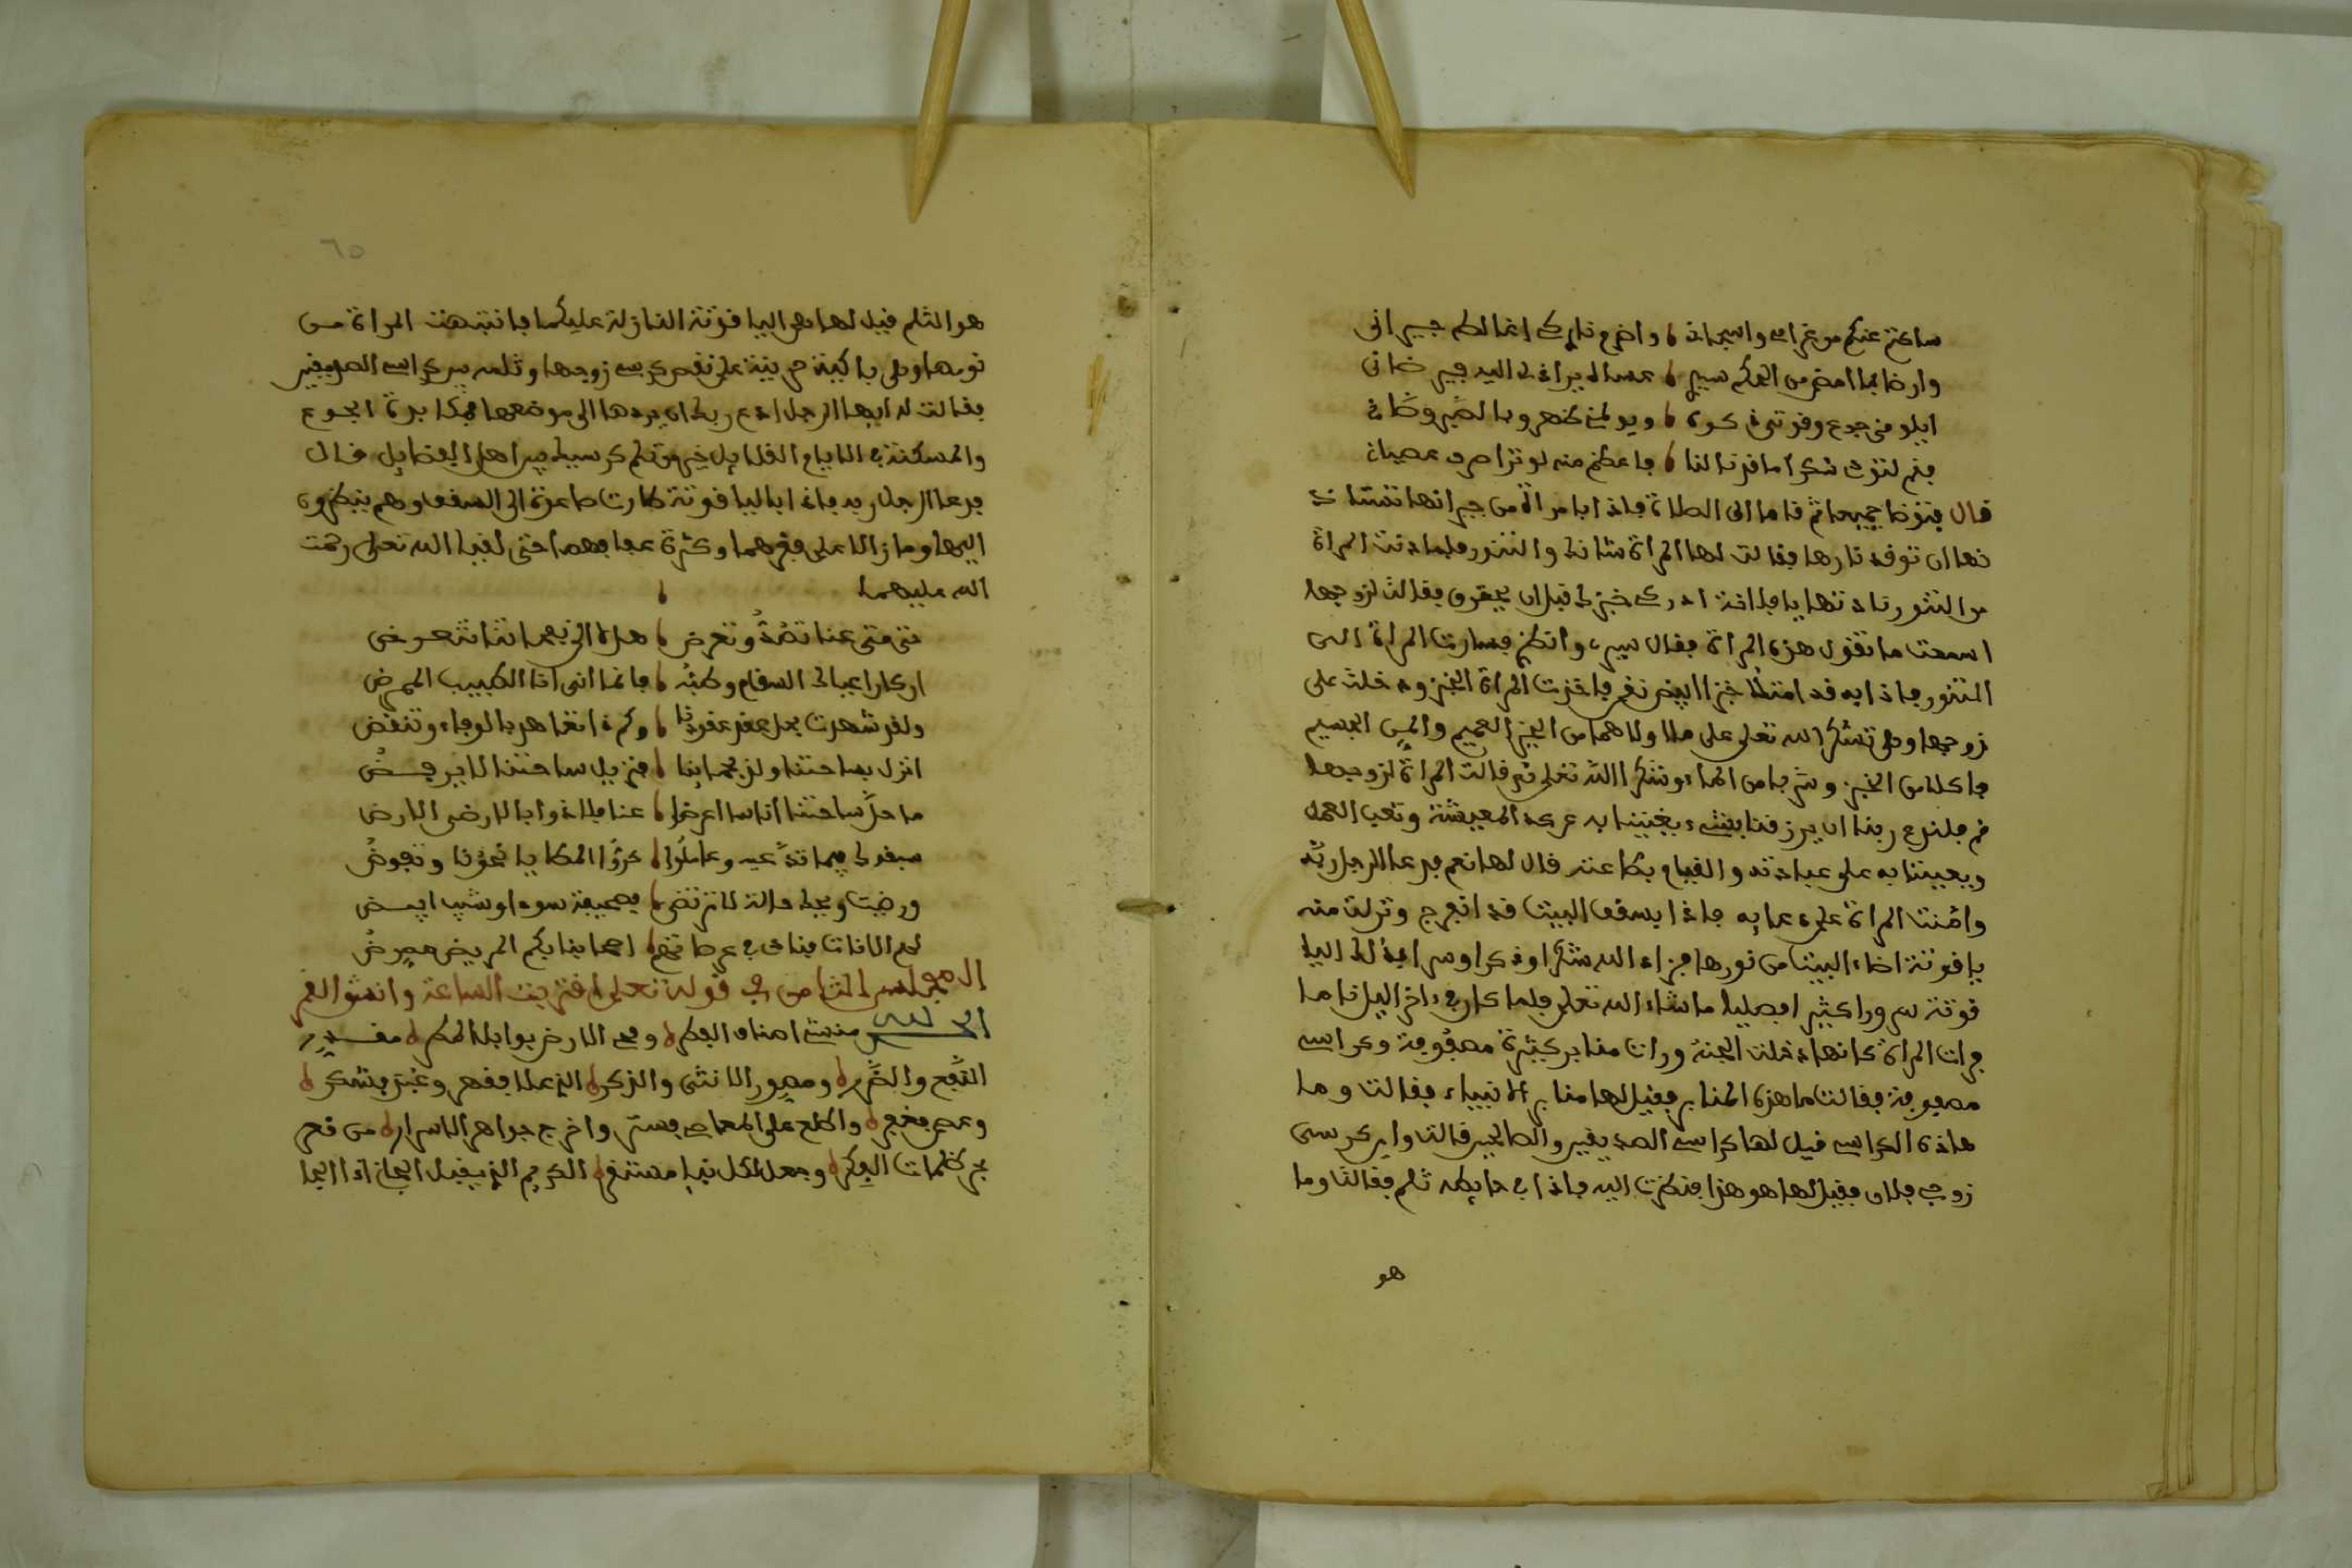 ساكتم عنكم موغرامي واسجاني واضرم ناركي اغالط جيراني
وارضا بما امضى من الحكم سيدي عسى لا يراني لي اليه جير ضاني
ابلو مني جوع وقوتي ذكره ويولمني ظهر وبالصبر وطاني
فنم لنوت شكرا ما قرنه لنا فاعظم منه لو تراصى عصياني
قال فتوضا جميعا ثم قاما الى الصلاة فاذا بامراة من جيرانها تستاذ
نها ان توقد نارها فقالت لها المراة شانك والتنور فلما دنت المراة
من التنور نادتها يا فلانة ادركي خبزك قبل ان يحترق فقالت لزوجها
اسمعت ما تقول هذه المراة فقال سيري وانظري فسارت المراة الى
التنور فاذا به قد امتلا خبزا ابيض نقي فاخذت المراة الخبز ودخلت على
زوجها وهي تشكر الله تعلى على ما اولاهما من الخير العميم والمن الجسيم
فاكلا من الخبز وشربا من الماء وشكرا الله تعلى ثم قالت المراة لزوجها
قم فلندع ربنا ان يرزقنا بشيء يغنينا به عن كد المعيشة وتعب العمل
ويعيننا به على عبادته والقيام بطاعته قال لها نعم فدعا الرجل ربه
وامنت المراة على دعايه فاذا بسقف البيت قد انفرج ونزلت منه
ياقوتة اضاء البيت من نورها فزاد الله شكرا وذكرا وسرا بذلك اليا
قوتة سرورا كثيرا فصليا ما شاء الله تعلى فلما كان في داخر الليل ناما
فرات المراة كانها دخلت الجنة ورات منابر كثيرة مصفوفة وكراسي
مصفوفة فقالت ما هذه المنابر فقيل لها منابر الانبياء فقالت وما
هاذه الكراسي قيل لها كراسي الصديقين والصالحين قالت واين كرسي
زوجي فلان فقيل لها هو هذا فنظرت اليه فاذا في حايطه ثلم فقالت وما
هو
٦٥
هو الثلم قيل لها هي الياقوتة النازلة عليكما فانتبهت المراة من
نومها وهي باكية حزينة على نقص كرسي زوجها وثلمه بين كراسي الصديقين
فقالت له ايها الرجل ادع ربك ان يردها الى موضعها فمكابدة الجوع
والمسكنة في الايام القلايل خير من ثلم كرسيك بين اهل الفضايل قال
فدعا الرجل ربه فاذا بالياقوتة طارت صاعدة الى السقف وهم ينظرون
اليها وما زالا على فقرهما وكثرة عجافهما حتى لقيا الله تعلى رحمت
الله عليهما
حتى متى عنا تصد وتعرض هلا الى نفحاتنا تتعرض
ان كان اعياك السقام وطبه فانما انني انا الطبيب الممرض
ولقد شهدت بحل عقد عقودنا وكم ذا تعاهد بالوفاء وتنقض
انزل بساحتنا ولذ بجنابنا فنزيل ساحتنا لا يرفض
ما حل ساحتنا اناسا اعرضوا عنا ملاذوا بالارض الارض
سبقوك فيما تدعيه وعاملوا حدوا المطايا نحونا وتفوض
ورضيت ويحك حالة لا ترتضى بصحيفة سودا وشيب ابيض
المجلس الثامن في قوله تعلى اقتربت الساعة وانشق القمر
الحمد لله منشئ اصناف الفطر ومحيي الارض بوابل المطر مقدر
النفع والضرر ومصور الانثى والذكر الذي علا فقهر وعبد فشكر
وعصي فغفر واطلع على المعاصي فستر واخرج جواهر الاسرار من قعر
بحر ظلمات الفكر وجعل لكل نبإ مستقر الكريم الذي يقبل الجاني اذا الجا